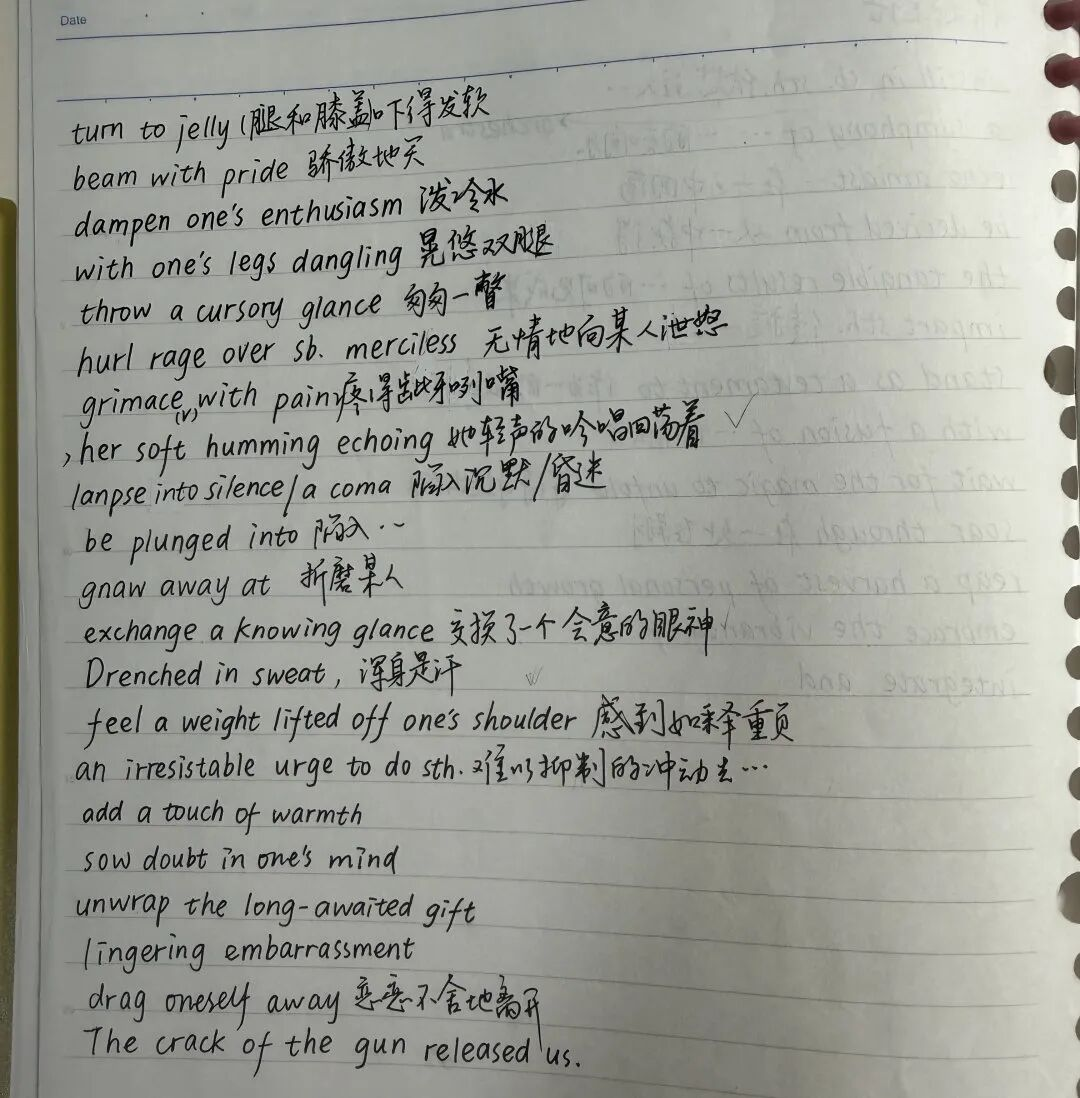 Date
turn to jelly (腿和膝盖)吓得发软
beam with pride 骄傲地笑
dampen one's enthusiasm 泼冷水
with one's legs dangling 晃悠双腿
throw a cursory glance 匆匆一瞥
hurl rage over sb. merciless 无情地向某人泄怒
grimace with pain 疼得龇牙咧嘴
(v)
, her soft humming echoing 她轻声的吟唱回荡着 ✓
lanpse into silence/a coma 陷入沉默/昏迷
be plunged into 陷入…
gnaw away at 折磨某人
exchange a knowing glance 交换了一个会意的眼神
Drenched in sweat, 浑身是汗
feel a weight lifted off one's shoulder 感到如释重负
an irresistable urge to do sth. 难以抑制的冲动去…
add a touch of warmth
sow doubt in one's mind
unwrap the long-awaited gift
lingering embarrassment
drag oneself away 恋恋不舍地离开
The crack of the gun released us.